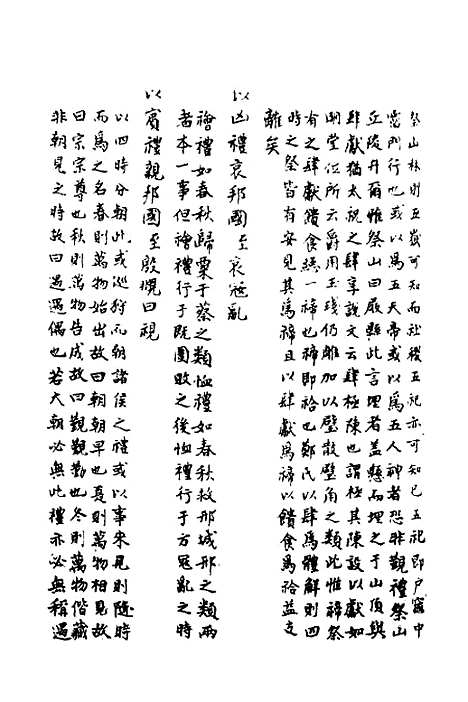 祭山林則五嶽可知而社稷五祀亦可知已五祀即戶竈中
霤門行也或以為五天帝或以為五人神者恐非觀禮祭山
丘陵升爾雅祭山曰庪縣此言埋者蓋縣而埋之于山頂與
肆獻猶太祝之肆享說文云肆極陳也謂極其陳設以獻如
明堂位所云爵用玉琖仍雕加以璧散璧角之類此惟禘祭
有之肆獻饋食總一禘也禘即祫也鄭氏以肆為體解則四
時之祭皆有安見其為禘且以肆獻為禘以饋食為祫益支
離矣
以凶禮哀邦國至哀寇亂
禬禮如春秋歸粟于蔡之類恤禮如春秋救邢城邢之類兩
者本一事但禬禮行于既圍敗之後恤禮行于方寇亂之時
以賓禮親邦國至殷覜曰視
以四時分朝此或巡狩而朝諸侯之禮或以事來見則隨時
而為之名春則萬物始出故曰朝朝早也夏則萬物相見故
曰宗宗尊也秋則萬物告成故曰覲覲勤也冬則萬物偕藏
非朝見之時故曰遇遇偶也若大朝必無此禮亦必無稱遇